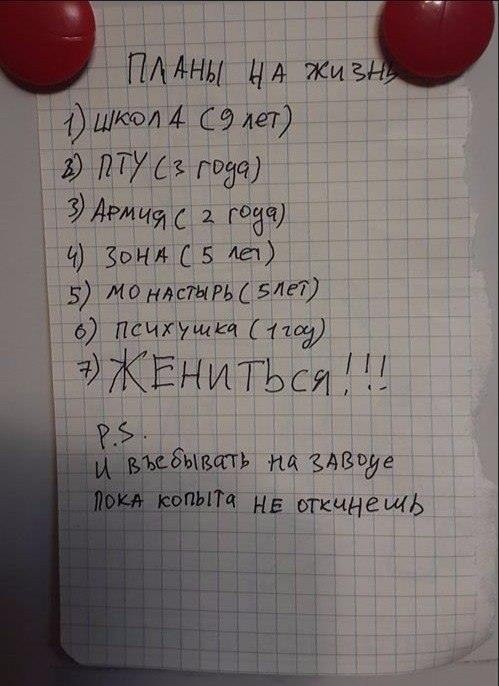 ПЛАНЫ НА ЖИЗНЬ
1) ШКОЛА (9 лет)
2) ПТУ (3 года)
3) АРМИЯ (2 года)
4) ЗОНА (5 лет)
5) МОНАСТЫРЬ (5 лет)
6) ПСИХУШКА (1 год)
7) ЖЕНИТЬСЯ!!!
P.S.
И ВЪЕБЫВАТЬ НА ЗАВОДЕ
ПОКА КОПЫТА НЕ ОТКИНЕШЬ